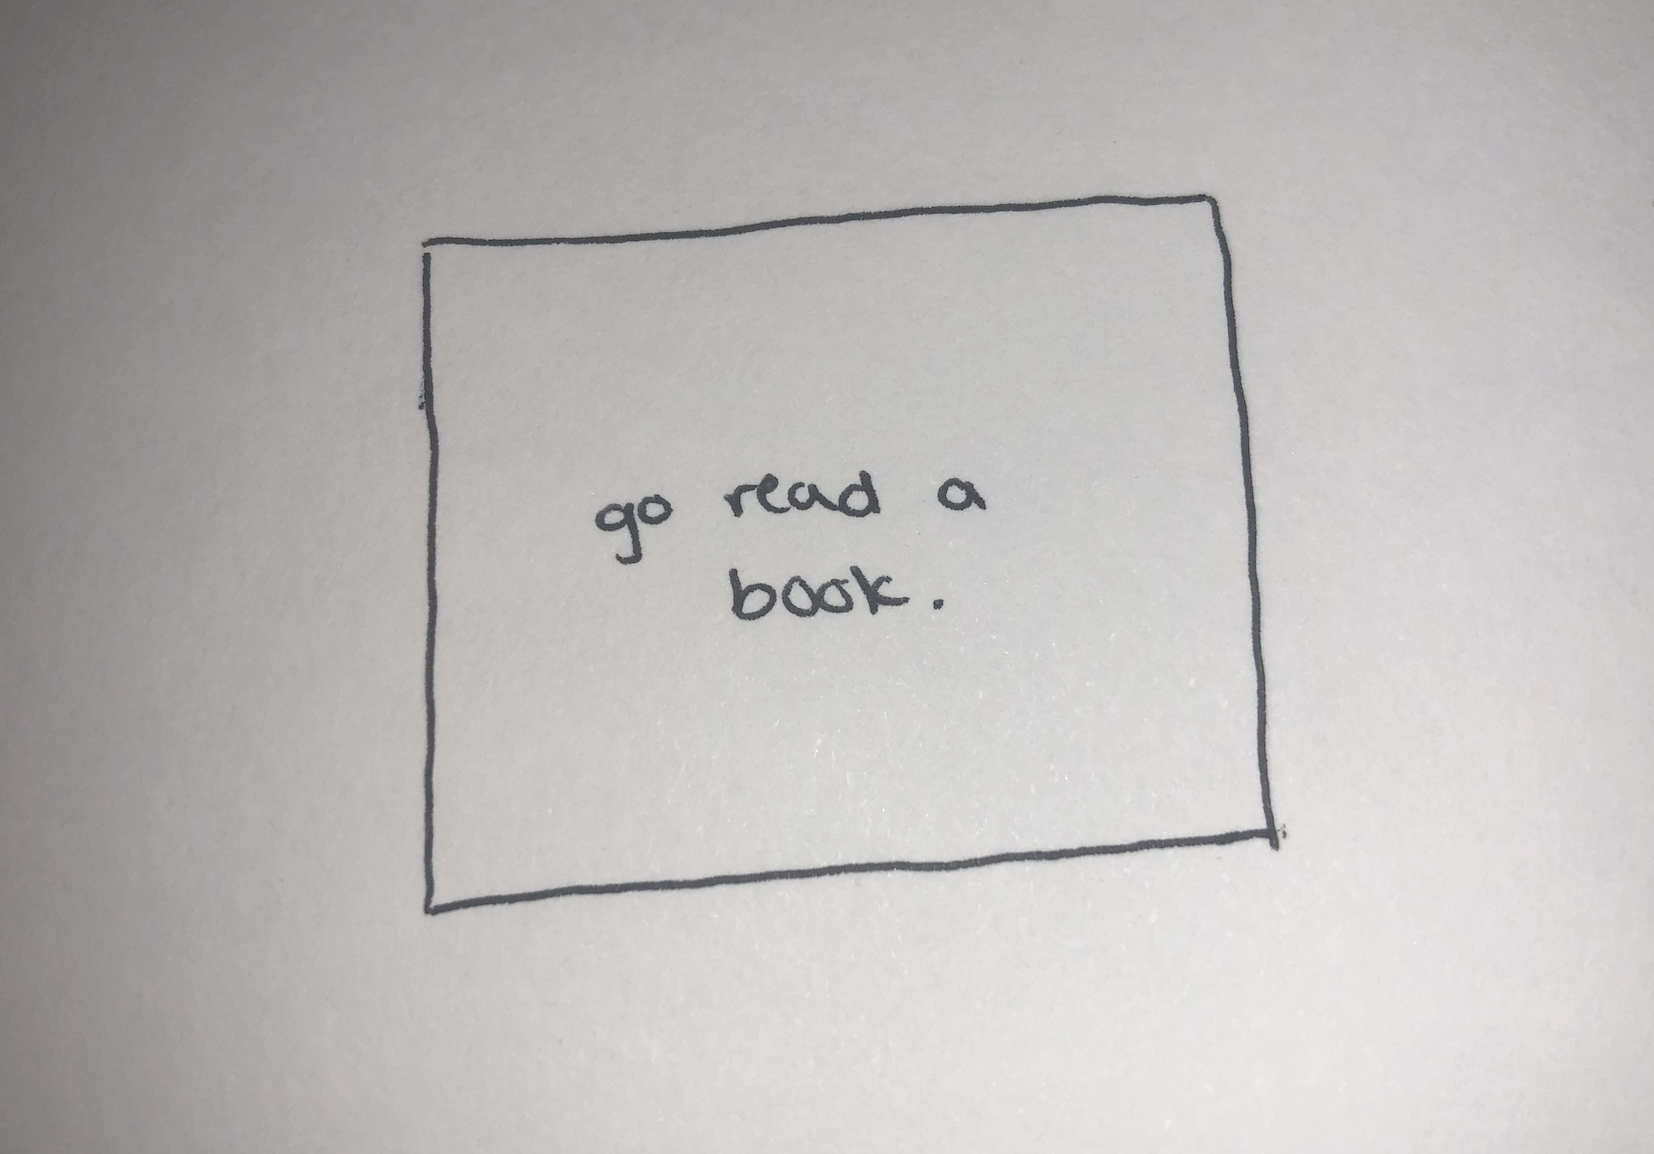 go read a
book.